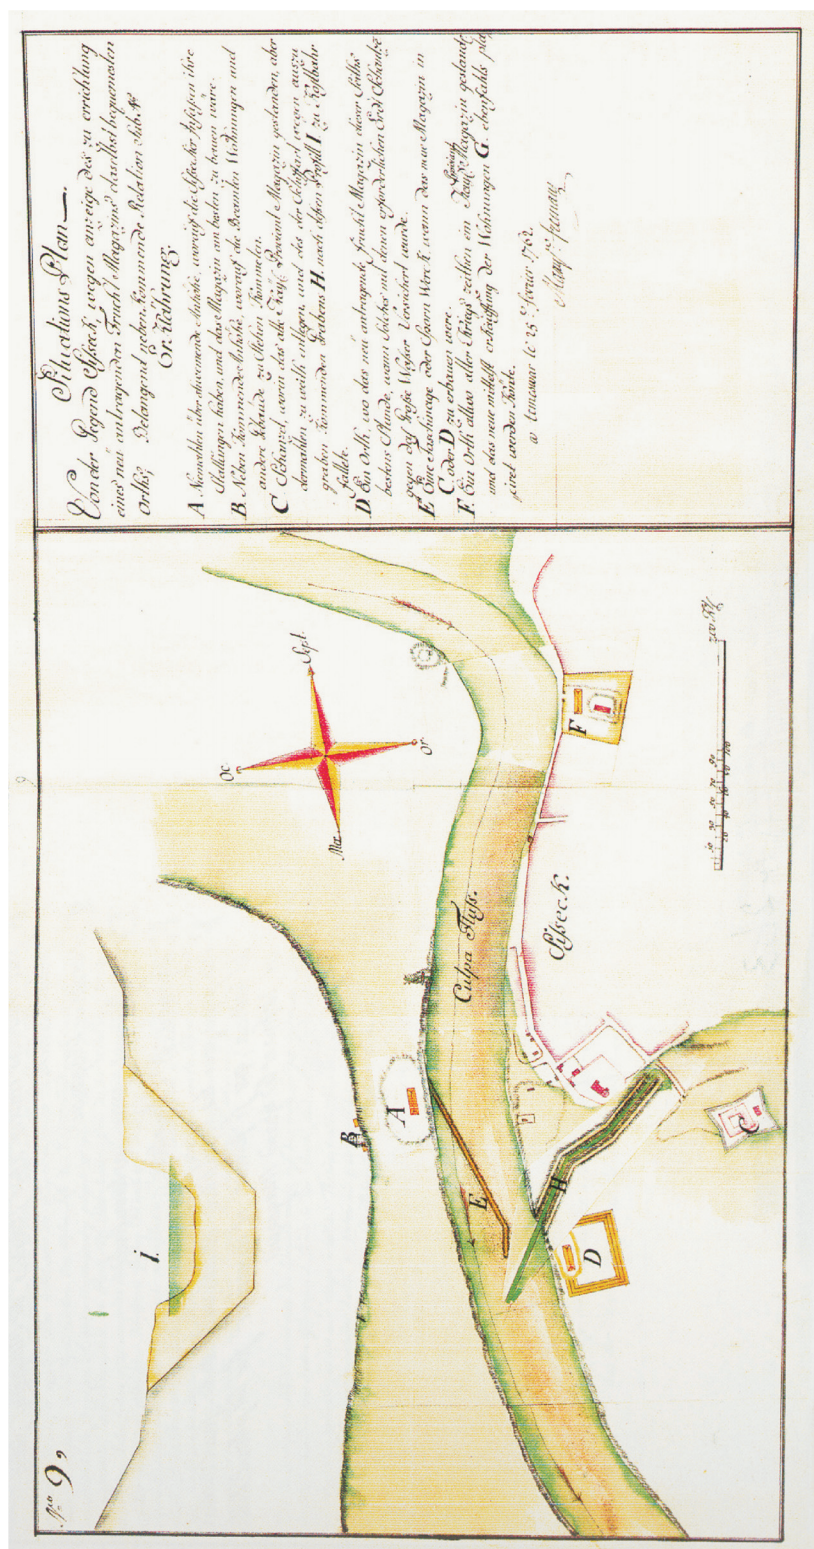 Situations Plan
Von der Gegend Sisseck, wegen anzeige des zu errichtung
eines neü antragenden Frucht Magazins daselbst bequemesten
Orths; Belangend neben kommende Relation Sub. N°
Er: klährung.
A Niemahlen über schwemende Anhöhe, worauf die Sissecker
Stellungen haben, und das Magazin am besten zu bauen wäre.
B. Neben kommende Anhöhe, worauf die Beamten Wohnungen und
andere Gebaüde zu stehen kommeten.
C Schanzl, worin das alte Proviant Magazin gestanden, aber
dermahlen zu weith entlegen, und das der Schiffart wegen auszu
graben kommenden Grabens H. nach dessen Profill I. zu
fallete.
D. Ein Orth, wo das neü antragende Frucht Magazin dieser Seiths
bestens Stunde, wann solches mit denen erforderlichen Erd Schanke
gegen das große Wasser Versichert wurde.
E Eine daschinage oder Sporn Werck, wann das neue Magazin in
C. oder D zu erbauen were.
F. Ein Orth allwo aller Kriegs zeithen ein Proviant Magazin gestande
und das neue mittelst erkauffung der Wohnungen G. ebenfalls pla
ciret werden künte.
a temesuar le 25 fevrier 1762.
N.ro 9,
I.
Oc.
Sept.
Or
Me.
B
A
E
Culpa Fluss.
Sisseck.
H
D
C
F
10 20 30 40 50 60 70 80 90 100